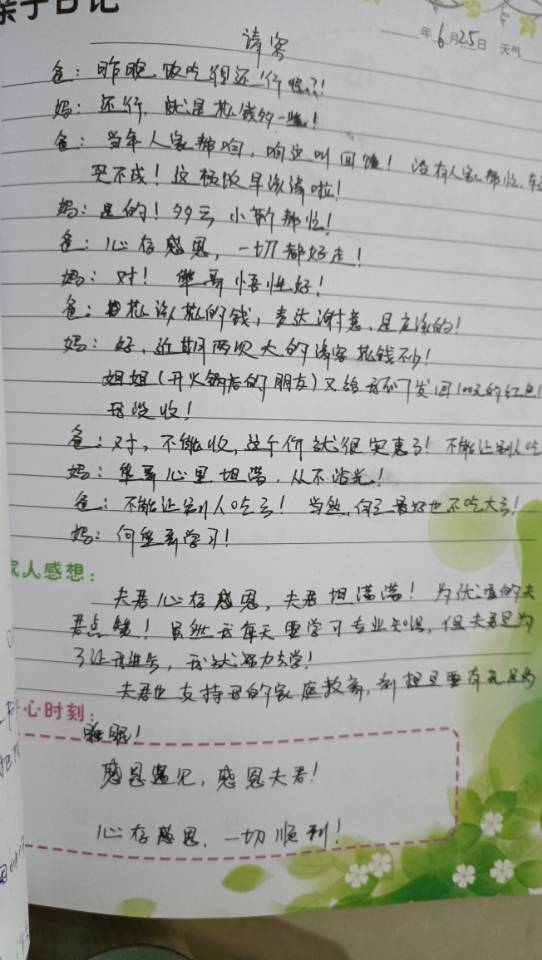 亲子日记
年6月25日 天气
请客
爸：昨晚饭吃得还行吧？！
妈：还行，就是花钱多一些！
爸：当年人家帮咱，咱这叫回馈！没有人家帮忙，
买不成！这顿饭早该请啦！
妈：是的！多亏小靳帮忙！
爸：心存感恩，一切都好走！
妈：对！华哥悟性好！
爸：花该花的钱，表达谢意，是应该的！
妈：好，近期两次大的请客花钱不少！
姐姐（开火锅店的朋友）又给我们发回100元的红包！
我没收！
爸：对，不能收，这个价就很实惠了！不能让别人吃
妈：华哥心里坦荡，从不沾光！
爸：不能让别人吃亏！当然，自己最好也不吃大亏！
妈：向华哥学习！
家人感想：
夫君心存感恩，夫君坦荡荡！为优渥的夫
君点赞！虽然我每天要学习专业知识，但夫君是为
了让我进步，我就努力去学！
夫君也支持我的家庭教育，
心时刻：
感恩遇见，感恩夫君！
心存感恩，一切顺利！